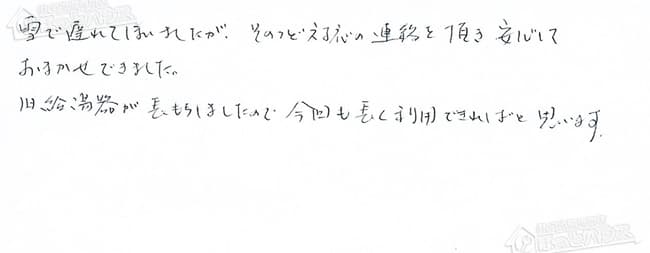 雪で遅れてしまいましたが、そのつど対応の連絡を頂き安心して
おまかせできました。
旧給湯器が長もちしましたので今回も長く利用できればと思います。